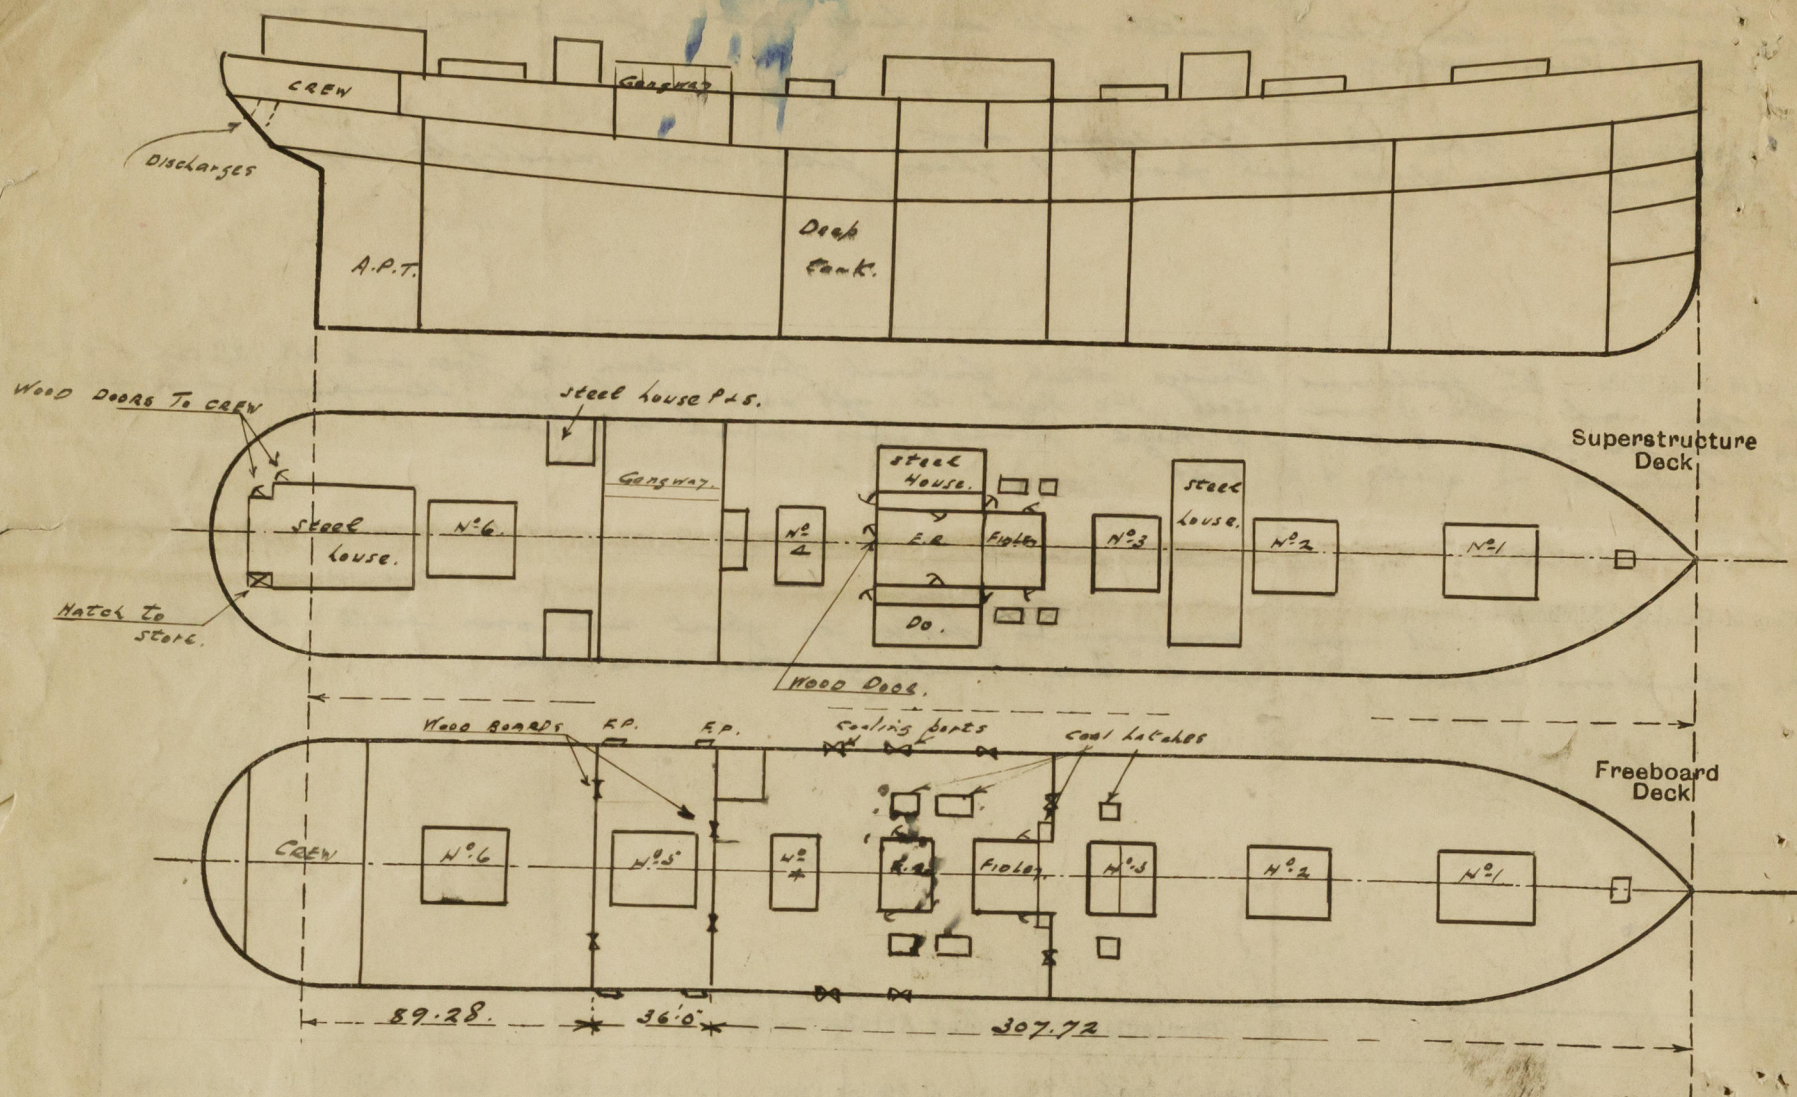 CREW
Gangway
Discharges
Deep
tank.
A.P.T.
WOOD DOORS TO CREW
Steel house P & S.
Superstructure
Deck
Steel
House.
Gangway.
Steel
house.
Steel
house.
No 6.
No
4
E.R
Fidley
No 3
No 2
No 1
Hatch to
store.
Do.
WOOD DOOR.
WOOD BOARDS
F.P.
F.P.
Coaling ports
Coal hatches
Freeboard
Deck
CREW
No 6
No 5
No
4
E.R.
Fidley
No 3
No 2
No 1
89.28.
36'.0"
307.72